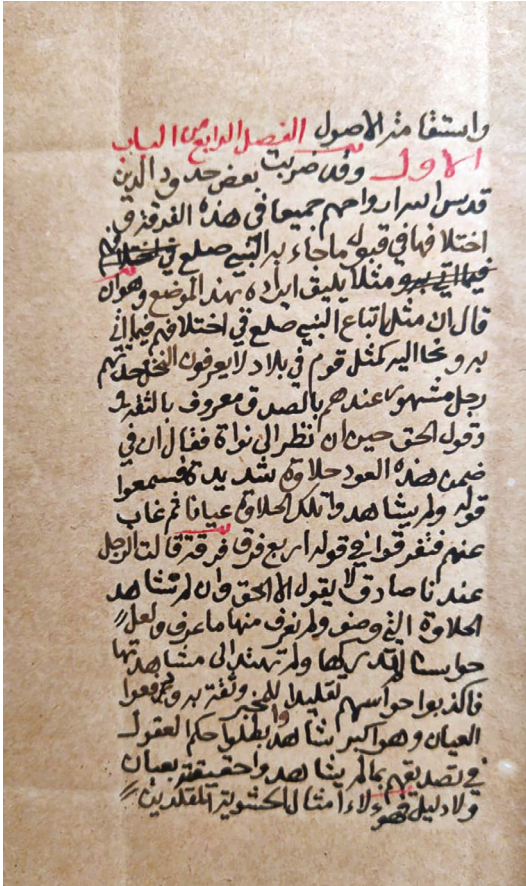 واستقامة الاصول الفصل الرابع من الباب
الاول وقد ضربت بعض حدود الدين
قدس الله ارواحهم جميعا في هذه الفرقة في
اختلافها في قبول ما جاء به النبي صلع في اختلافهم
فيما اتي به ومثلا يليق ايراده بهذ الموضع وهو ان
قال ان مثل اتباع النبي صلع في اختلافهم فيما اتي
به ودعا اليه كمثل قوم في بلاد لا يعرفون النخل حدثهم
رجل مشهور عندهم بالصدق معروف بالثقة في
وقول الحق حين ان نظر الى نواة فقال ان في
ضمن هذه العود حلاوة شديدة فسمعوا
قوله ولم يشاهدوا تلك الحلاوة عيانا ثم غاب
عنهم فتفرقوا في قوله اربع فرق فرقة قالت الرجل
عندنا صادق لا يقول الا الحق وان لم نشاهد
الحلاوة التي وصف ولم نعرف منها ما عرف ولعل
حواسنا لم تدركها ولم تهتد الى مشاهدتها
فاكذبوا حواسهم تقليدا للمخبر وثقة به ودفعوا
العيان وهو اكبر شاهد وابطلوا حكم العقول
في تصديقهم بما لم يشاهدوا حقيقته بعيان
ولا دليل فهؤلاء امثال الحشوية المقلدين